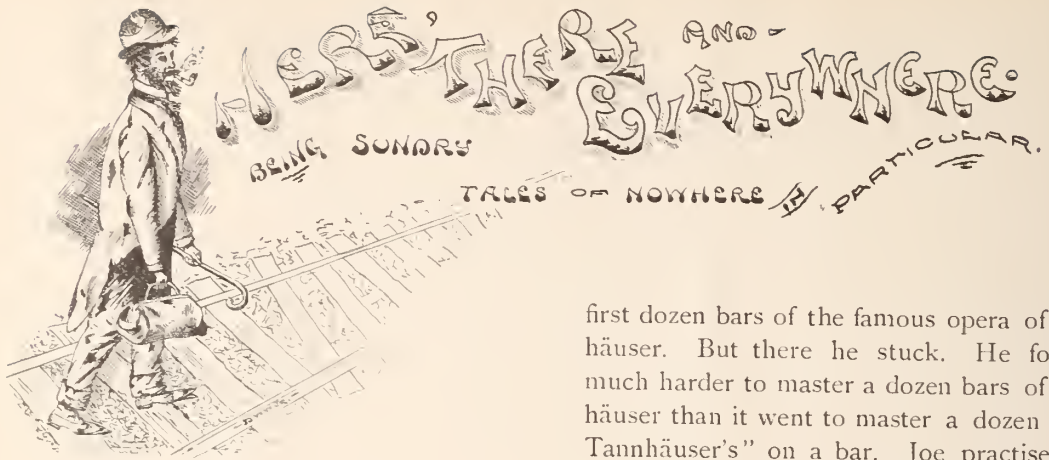 HERE, THERE AND-
EVERYWHERE.
BEING SUNDRY
TALES OF NOWHERE IN PARTICULAR.
first dozen bars of the famous opera of
häuser. But there he stuck. He fo
much harder to master a dozen bars of
häuser than it went to master a dozen
Tannhäuser's" on a bar. Joe practise